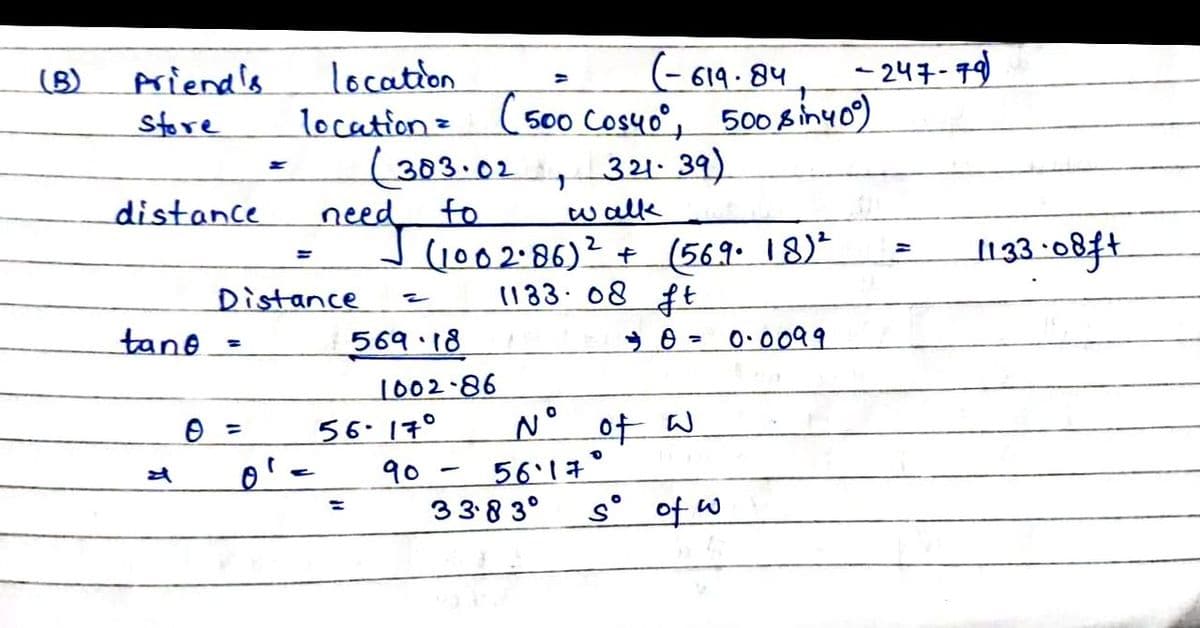 (B) Friend's location = (-619.84, -247.79)
store location = (500 cos40°, 500 sin40°)
= (383.02, 321.39)
distance need to walk
= √(1002.86)² + (569.18)² = 1133.08ft
Distance = 1133.08 ft
tanθ = 569.18 ⇒ θ = 0.0099
1002.86
θ = 56.17° N° of W
⇒ θ' = 90 - 56.17°
= 33.83° S° of W